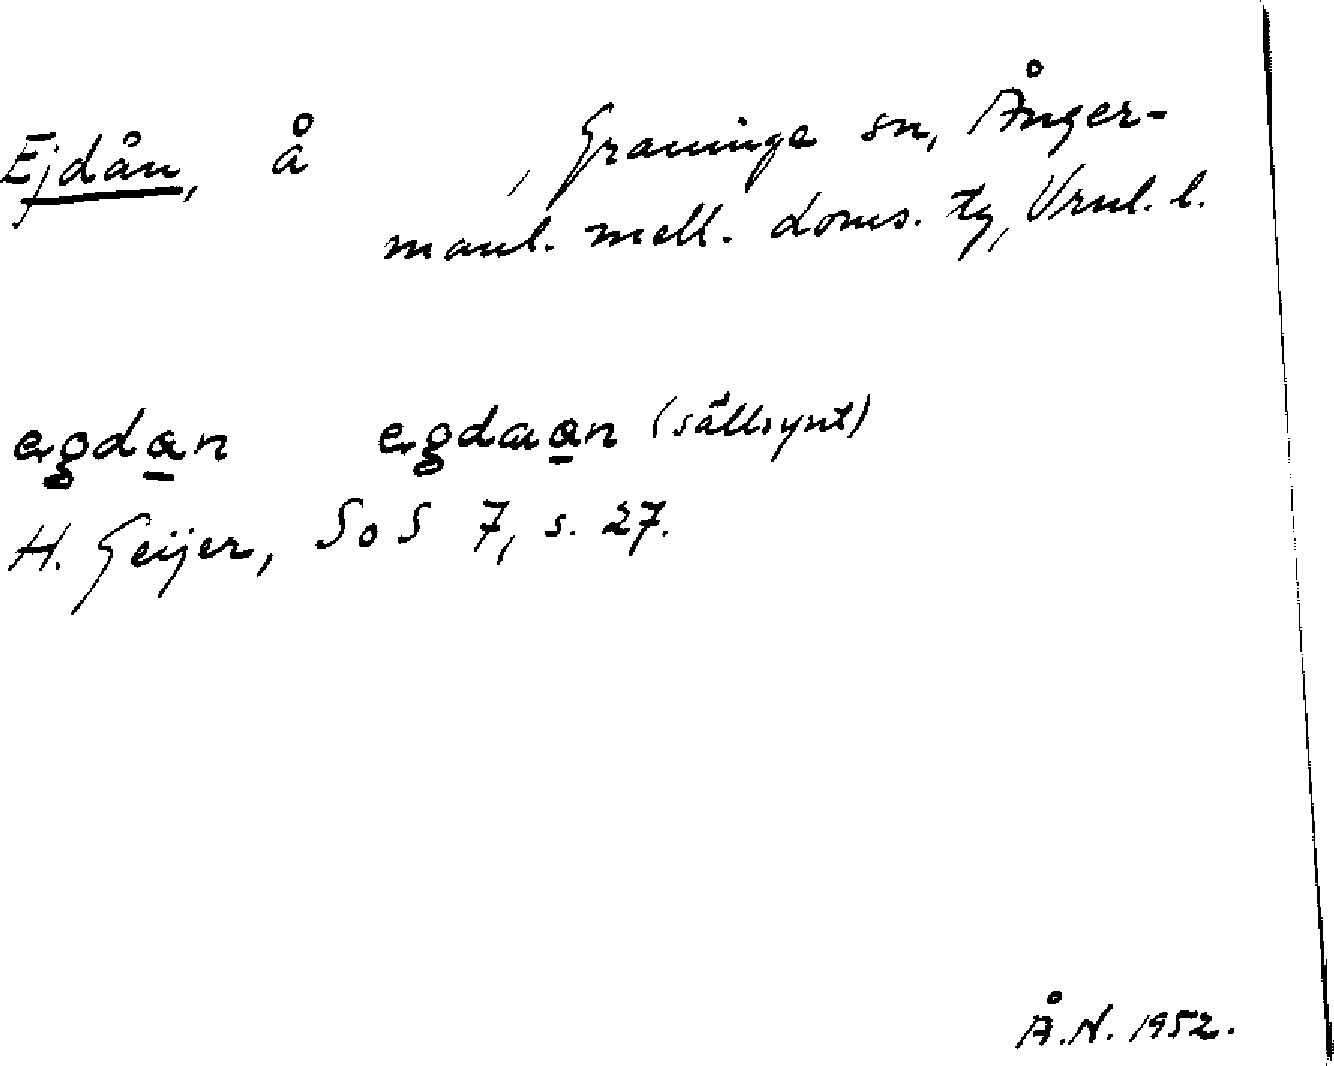 Ejdån, å , Graninge sn, Ånger-
manl. mell. doms. tg, Vrnl. l.
ęgdan ęgdaan (sällsynt)
H. Geijer, SoS 7, s. 27.
Å.N. 1952.